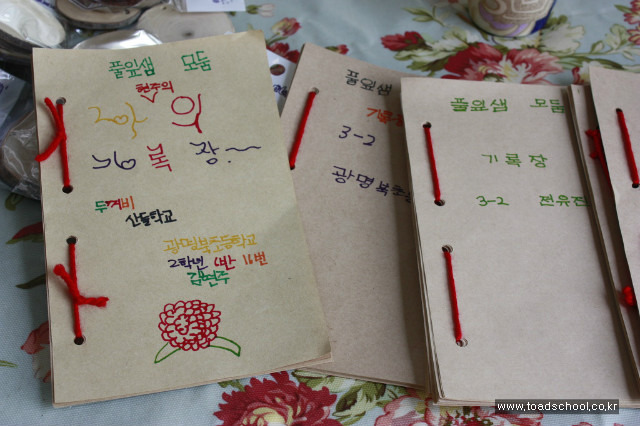 풀잎샘 모둠
현주의
기록장~
두꺼비
산들학교
광명북초등학교
2학년 6반 11번
김현주
풀잎샘
3-2
광명북초
풀잎샘 모둠
기록장
3-2 전유진
www.toadschool.co.kr